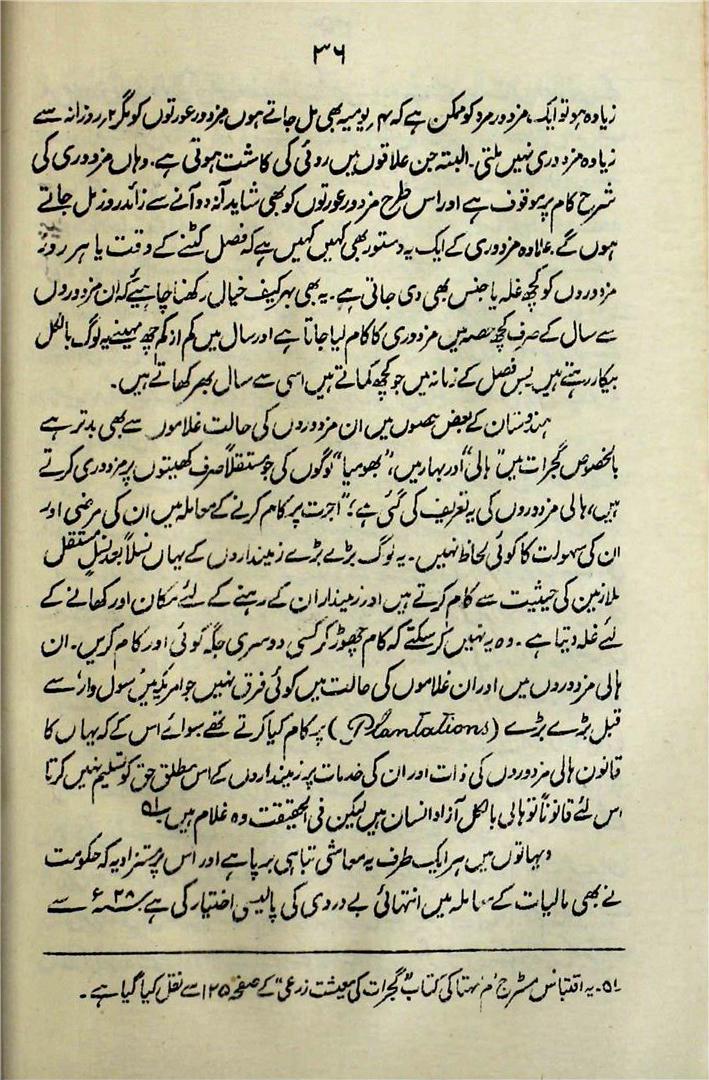 ۳۶
زیادہ ہو تو ایک مزدور مرد کو ممکن ہے کہ ۴ر یومیہ بھی مل جاتے ہوں مزدور عورتوں کو مگر ۲ر روزانہ سے
زیادہ مزدوری نہیں ملتی۔ البتہ جن علاقوں میں روئی کی کاشت ہوتی ہے۔ وہاں مزدوری کی
شرح کام پر موقوف ہے اور اس طرح مزدور عورتوں کو بھی شاید آنہ دو آنے سے زائد روز مل جاتے
ہوں گے۔ علاوہ مزدوری کے ایک یہ دستور بھی کہیں کہیں ہے کہ فصل کٹنے کے وقت یا ہر روز
مزدوروں کو کچھ غلہ یا جنس بھی دی جاتی ہے۔ یہ بھی بہر کیف خیال رکھنا چاہیے کہ ان مزدوروں
سے سال کے صرف کچھ حصہ میں مزدوری کا کام لیا جاتا ہے اور سال میں کم از کم چھ مہینے یہ لوگ بالکل
بیکار رہتے ہیں پس فصل کے زمانہ میں جو کچھ کماتے ہیں اسی سے سال بھر کھاتے ہیں۔
ہندوستان کے بعض حصوں میں ان مزدوروں کی حالت غلاموں سے بھی بدتر ہے
بالخصوص گجرات میں "ہالی" اور بہار میں، "بھومیا" لوگوں کی جو مستقلاً صرف کھیتوں پر مزدوری کرتے
ہیں، ہالی مزدوروں کی یہ تعریف کی گئی ہے؛ "اجرت پر کام کرنے کے معاملہ میں ان کی مرضی اور
ان کی سہولت کا کوئی لحاظ نہیں۔ یہ لوگ بڑے بڑے زمینداروں کے یہاں نسلاً بعد نسلٍ مستقل
ملازمین کی حیثیت سے کام کرتے ہیں اور زمیندار ان کے رہنے کے لئے مکان اور کھانے کے
لئے غلہ دیتا ہے۔ وہ یہ نہیں کر سکتے کہ کام چھوڑ کر کسی دوسری جگہ کوئی اور کام کریں۔ ان
ہالی مزدوروں میں اور ان غلاموں کی حالت میں کوئی فرق نہیں جو امریکہ میں 'سول وار' سے
قبل بڑے بڑے (Plantations) پر کام کیا کرتے تھے سوائے اس کے کہ یہاں کا
قانون ہالی مزدوروں کی ذات اور ان کی خدمات پر زمینداروں کے اس مطلق حق کو تسلیم نہیں کرتا
اس لئے قانوناً تو ہالی بالکل آزاد انسان ہیں لیکن فی الحقیقت وہ غلام ہیں۔ ۵۱
دیہاتوں میں ہر ایک طرف یہ معاشی تباہی برپا ہے اور اس پر مستزاد یہ کہ حکومت
نے بھی مالیات کے معاملہ میں انتہائی بے دردی کی پالیسی اختیار کی ہے ۲۸ء سے
۵۱۔ یہ اقتباس مسٹر ج 'م' مہتا کی کتاب "گجرات کی معیشت زرعی" کے صفحہ ۱۲۵ سے نقل کیا گیا ہے۔